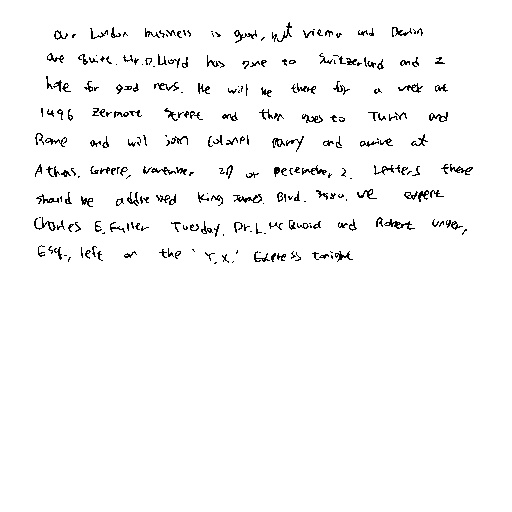 Our London business is good, but Vienna and Berlin
are quiet. Mr. D. Lloyd has gone to Switzerland and I
hope for good news. He will be there for a week at
1496 Zermott Street and then goes to Turin and
Rome and will join Colonel Parry and arrive at
Athens, Greece, November 27 or December 2. Letters there
should be addressed King James Blvd. 3580. We expect
Charles E. Fuller Tuesday. Dr. L. McQuaid and Robert Unger,
Esq., left on the 'Y.X.' Express tonight